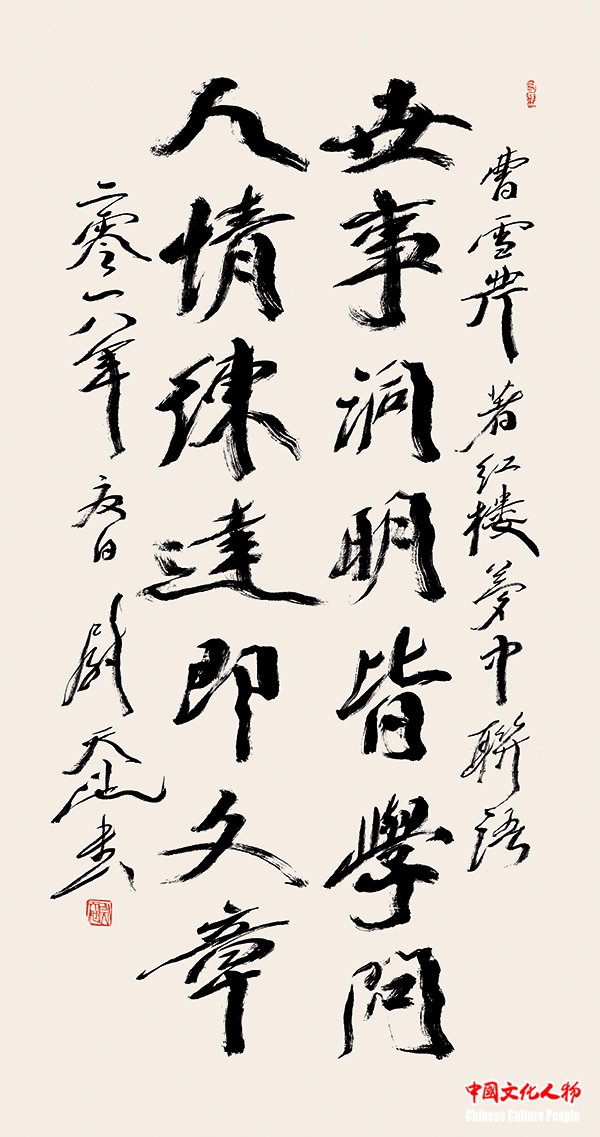 曹雪芹著红楼夢中聯語
世事洞明皆學問
人情練達即文章
二零一八年夏日尉天池書
中國文化人物
Chinese Culture People